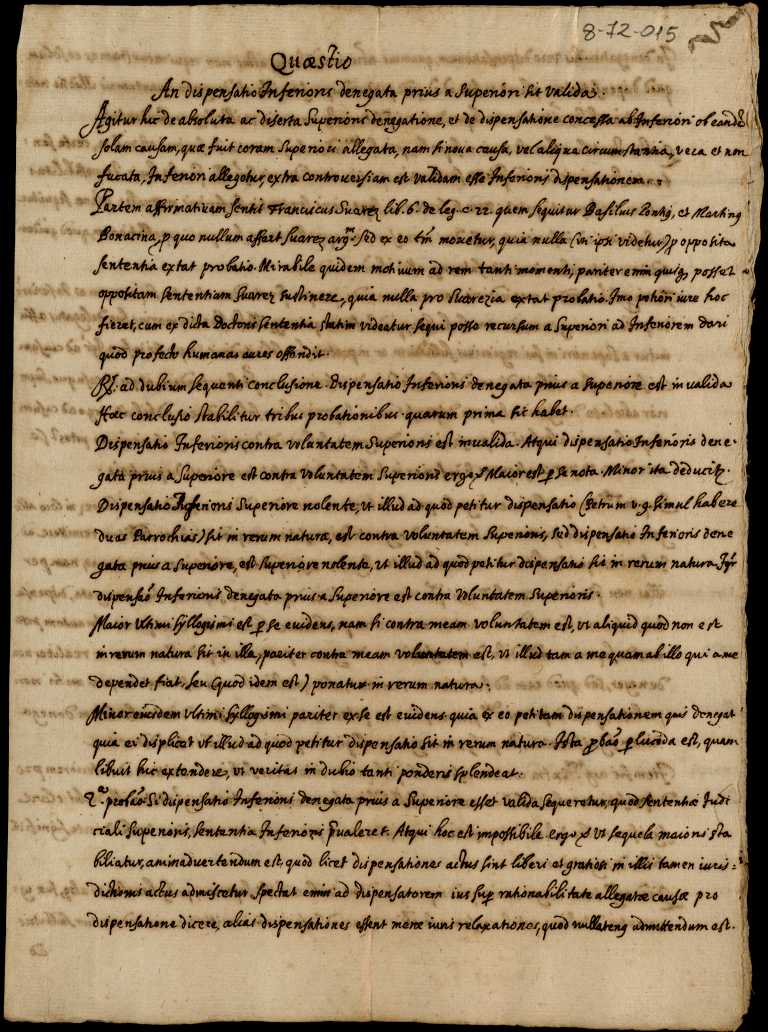 8-72-015
Quæstio
An dispensatio Inferioris denegata prius a Superiori sit valida.
Agitur hic de absoluta ac deserta Superioris denegatione, et de dispensatione concessa ab Inferiori ob eandē
solam causam, quæ fuit coram Superiori allegata, nam si noua causa, vel aliqua circumstantia, vera et non
fucata, Inferiori allegetur, extra controuersiam est validam esse Inferioris dispensationem.
Partem affirmatiuam sentit Franciscus Suarez lib. 6. de leg. c. 22. quem sequitur Basilius Pontiq, et Martinq
Bonacina, p quo nullum affert Suarez argm. sed ex eo tm mouetur, quia nulla (vt ipsi videtur) p opposita
sententia extat probatio. Mirabile quidem motiuum ad rem tanti momenti, pariter enim quisq posset
oppositam sententiam Suarez sustinere, quia nulla pro Suarezia extat probatio. Imo potiori iure hoc
fieret, cum ex dicta Doctoris sententia statim videatur sequi posse recursum a Superiori ad Inferiorem dari
quod profecto humanas aures offendit.
R. ad dubium sequenti conclusione. Dispensatio Inferioris denegata prius a Superiore est inualida
Hæc conclusio stabilitur tribus probationibus. quarum prima sic habet.
Dispensatio Inferioris contra voluntatem Superioris est inualida. Atqui dispensatio Inferioris dene-
gata prius a Superiore est contra voluntatem Superioris ergo & Maior est p se nota. Minor ita deducit.
Dispensatio Inferioris Superiore nolente, vt illud ad quod petitur dispensatio (Petrum v.g. simul habere
duas Parrochias) sit in rerum natura, est contra voluntatem Superioris, sed dispensatio Inferioris dene
gata prius a Superiore, est superiore nolente, vt illud ad quod petitur dispensatio sit in rerum natura. Igr
dispensaō Inferioris denegata prius a Superiore est contra voluntatem Superioris.
Maior vltimi syllogismi est p se euidens, nam si contra meam voluntatem est, vt aliquid quod non est
in rerum natura sit in illa, pariter contra meam voluntatem est, vt illud tam a me quam ab illo qui a me
dependet fiat, seu (quod idem est) ponatur in rerum natura.
Minor eiusdem vltimi syllogismi pariter ex se est euidens quia ex eo petitam dispensationem quis denegat
quia ei displicet vt illud ad quod petitur dispensatio sit in rerum natura. Ista pbaō plucida est, quam
libuit hic extendere, vt veritas in dubio tanti ponderis splendeat.
2.ª probaō. Si dispensatio Inferioris denegata prius a Superiore esset valida sequeretur, quod sententiæ Iudi
ciali Superioris, sententia Inferioris pualeret. Atqui hoc est impossibile. ergo & vt sequela maioris sta
biliatur, animaduertendum est, quod licet dispensationes actus sint liberi et gratiosi in illis tamen iuris=
dictionis actus admiscetur. spectat enim ad dispensatorem ius sup rationabilitate allegatæ causæ pro
dispensatione dicere, alias dispensationes essent meræ iuris relaxationes, quod nullatenq admittendum est.